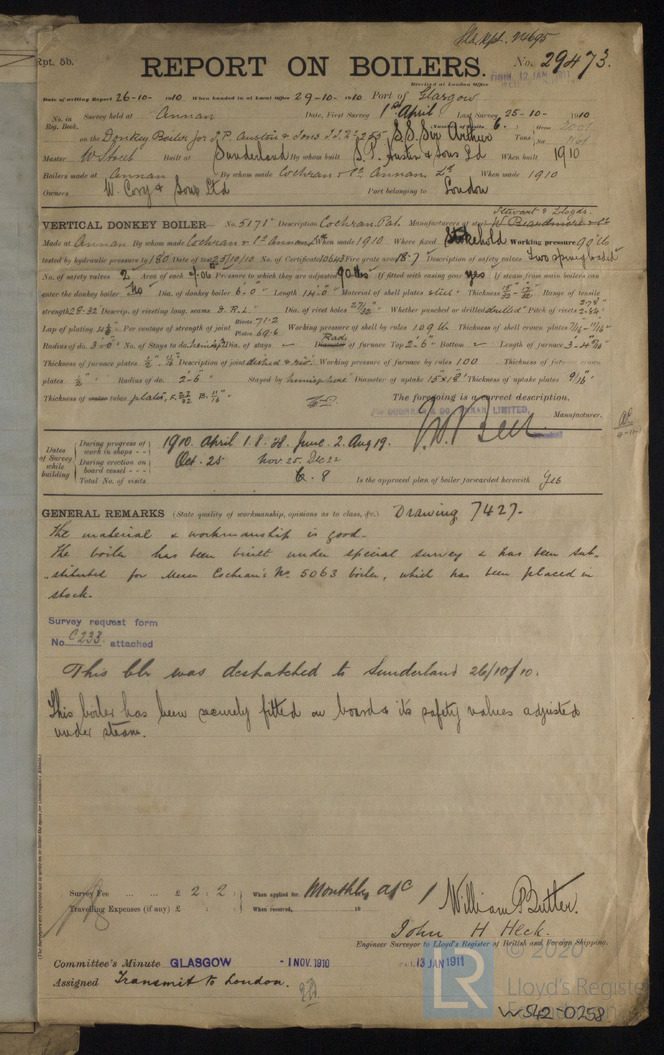 Sld. Rpt. 24695
Rpt. 5b.
REPORT ON BOILERS.
No. 29473.
Received at London Office
12 JAN 1911
Date of writing Report 26-10- 1910 When handed in at Local Office 29-10- 1910 Port of Glasgow
No. in Reg. Book. Survey held at Annan Date, First Survey 1st April Last Survey 25-10- 1910
on the Donkey Boiler for S.P. Austin & Sons S.S. Sir Arthur (Number of Visits 6) Tons Gross Net
Master W Street Built at Sunderland By whom built S. P. Austin & Sons Ld When built 1910
Boilers made at Annan By whom made Cochran & Co. Annan, Ld. When made 1910
Owners W. Cory & Sons Ltd Port belonging to London
Stewart & Lloyds
VERTICAL DONKEY BOILER No. 5171 Description Cochran. Pat. Manufacturers of steel W. Beardmore & Co
Made at Annan By whom made Cochran & Co. Annan Ld When made 1910 Where fixed Stokehold Working pressure 90 lb
tested by hydraulic pressure to 180 Date of test 25/10/10 No. of Certificate 10643 Fire grate area 18.7 Description of safety valves Two spring loaded
No. of safety valves 2 Area of each 7.06 Pressure to which they are adjusted 90 lbs If fitted with easing gear yes If steam from main boilers can
enter the donkey boiler No Dia. of donkey boiler 6'-0" Length 14'-0" Material of shell plates steel Thickness Range of tensile
strength 28-32 Descrip. of riveting long. seams D.R.L. Dia. of rivet holes 27/32" Whether punched or drilled drilled Pitch of rivets 2-7/8"
Lap of plating Per centage of strength of joint Rivets 71.2 Plates 69.6 Working pressure of shell by rules 109 lb Thickness of shell crown plates
Radius of do. 3'-0" No. of Stays to do. Dia. of stays Rad. of furnace Top 2'-6" Bottom Length of furnace
Thickness of furnace plates Description of joint Working pressure of furnace by rules 100 Thickness of furnace crown
plates Radius of do. 2'-6" Stayed by hemispherical Diameter of uptake Thickness of uptake plates 9/16"
Thickness of tubes plates, F. 27/32 B. 11/16" The foregoing is a correct description,
FOR COCHRAN & CO. ANNAN LIMITED,
Manufacturer.
Dates of Survey while building
During progress of work in shops - - 1910. April 1. 8. 28. June. 2. Aug 19.
During erection on board vessel - - - Oct. 25 Nov. 25. Dec 22
Total No. of visits 8 Is the approved plan of boiler forwarded herewith Yes
GENERAL REMARKS (State quality of workmanship, opinions as to class, &c.) Drawing 7427.
The material & workmanship is good.
The boiler has been built under special survey & has been sub-
-stituted for Messrs Cochran's No. 5063 boiler, which has been placed in
stock.
Survey request form
No. C233 attached
This blr was despatched to Sunderland 26/10/10.
This boiler has been securely fitted on board & its safety valves adjusted
under steam.
Survey Fee ... ... £ 2 : 2 : When applied for. Monthly a/c
Travelling Expenses (if any) £ : : When received, 19
William P Butler.
John H Heck.
Engineer Surveyor to Lloyd's Register of British and Foreign Shipping.
Committee's Minute GLASGOW - 1 NOV. 1910 13 JAN 1911
Assigned Transmit to London.
© 2020
LR
Lloyd's Register
Foundation
W542-0258